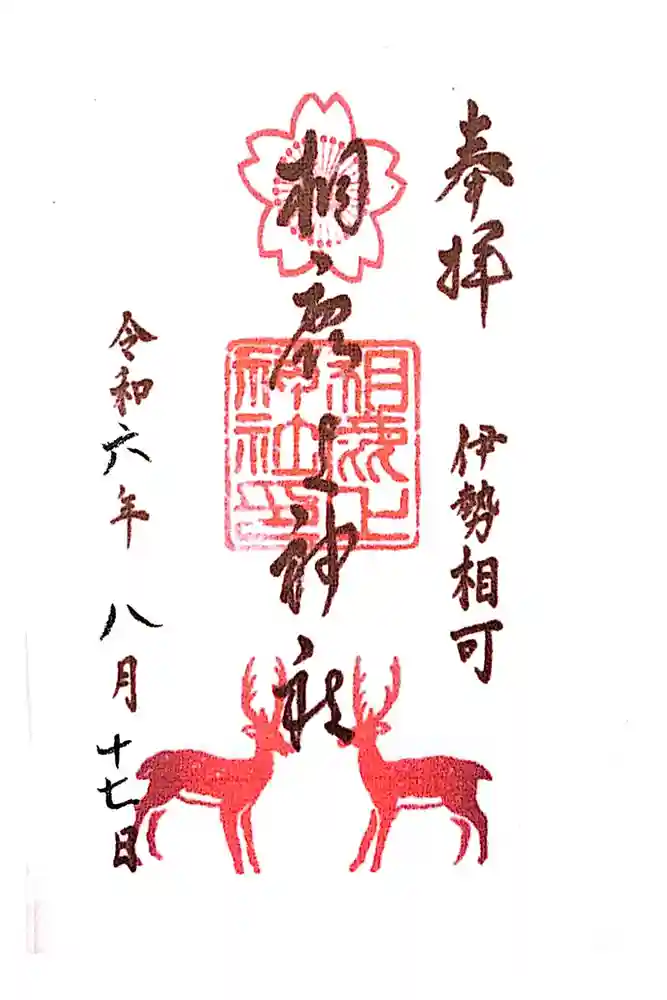 奉拝　伊勢相可
相鹿上神社
相鹿上
神社印
令和六年　八月十七日